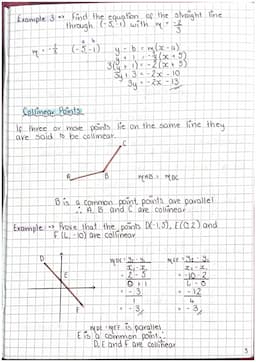 Example 3 => Find the equation of the straight line
through (-5,-1) with m = -2/3
m = -2/3 (-5,-1) y - b = m(x - a)
a b
y + 1 = -2/3(x + 5)
3(y + 1) = -2(x + 5)
3y + 3 = -2x - 10
3y = -2x - 13
Collinear Points:
If three or more points lie on the same line they
are said to be collinear.
C
A B
mAB = mBC
B is a common point, points are parallel
∴ A, B and C are collinear
Example => Prove that the points D(-1,5), E(0,2) and
F(4,-10) are collinear
D
E
F
mDE = y2 - y1 / x2 - x1 mEF = y2 - y1 / x2 - x1
= 2 - 5 / 0 + 1 = -10 - 2 / 4 - 0
= -3 / 1 = -12 / 4
= -3 = -3
mDE = mEF is parallel
E is a common point
∴ D, E and F are collinear